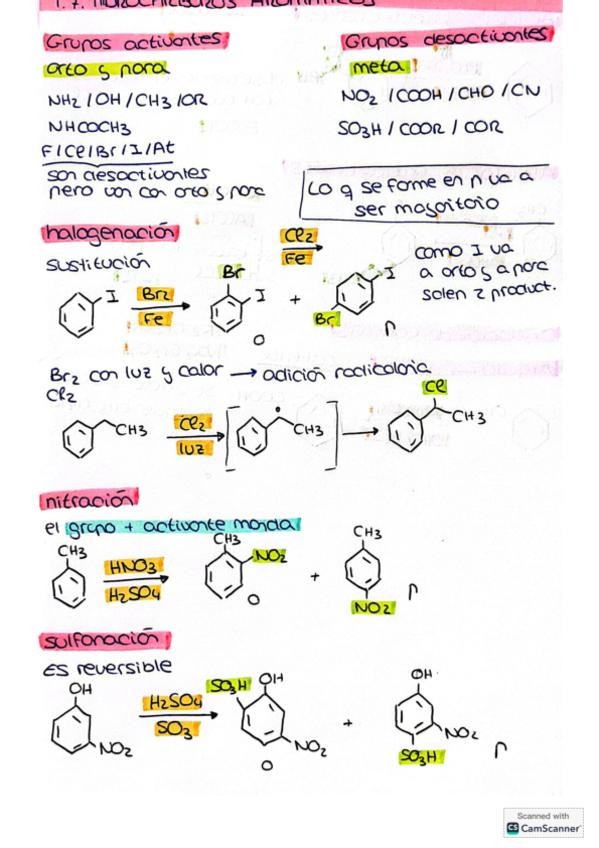 1.7. Hidrocarburos Aromáticos
Grupos activantes
orto y para
NH2 / OH / CH3 / OR
NHCOCH3
F / Cl / Br / I / At
son desactivantes
pero van con orto y para
Grupos desactivantes
meta!
NO2 / COOH / CHO / CN
SO3H / COOR / COR
Lo q se forme en p va a
ser mayoritario
halogenación
sustitución
I
Br2
Fe
Br
I
o
+
Cl2
Fe
I
Br
p
como I va
a orto y a para
salen 2 product.
Br2 con luz y calor → adición radicalaria
Cl2
CH3
Cl2
luz
CH3
Cl
CH3
nitración
el grupo + activante manda
CH3
HNO3
H2SO4
CH3
NO2
o
+
CH3
NO2
p
sulfonación
Es reversible
OH
NO2
H2SO4
SO3
SO3H
OH
NO2
o
+
OH
NO2
SO3H
p
Scanned with
CS CamScanner